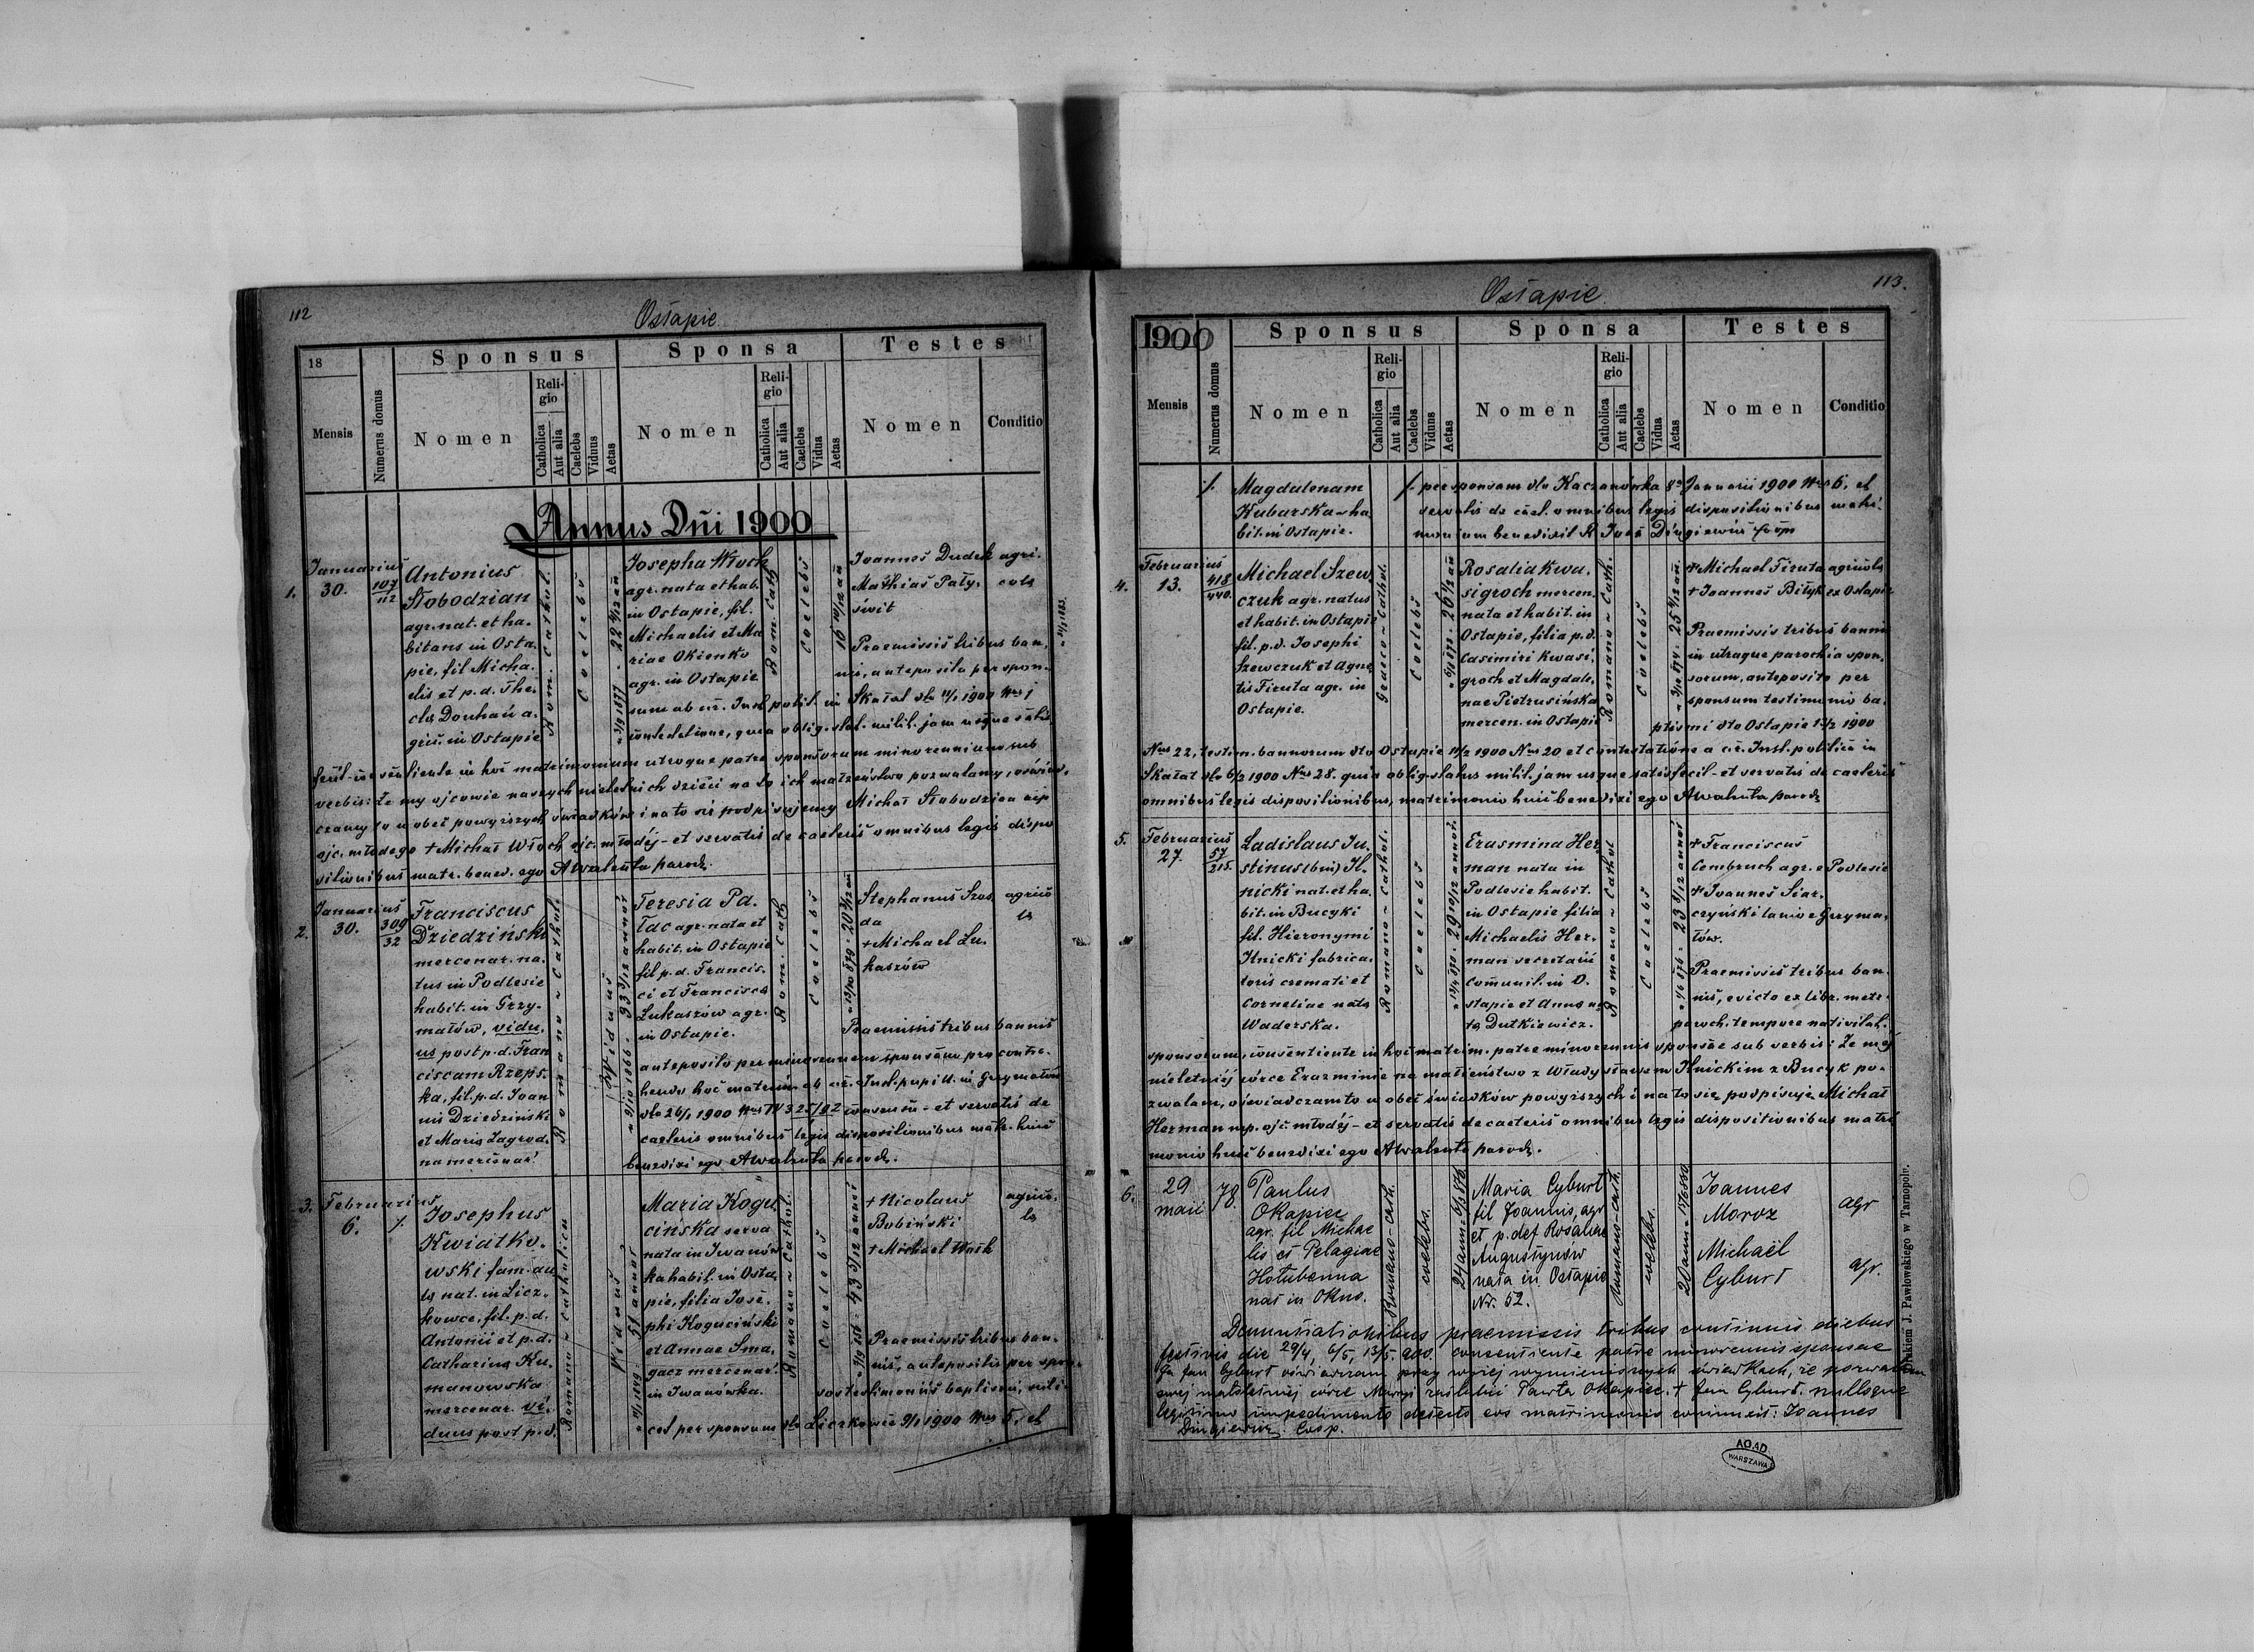 112
Ostapie
18
Mensis
Numerus domus
Sponsus
Nomen
Religio
Catholica
Aut alia
Caelebs
Viduus
Aetas
Sponsa
Nomen
Religio
Catholica
Aut alia
Caelebs
Vidua
Aetas
Testes
Nomen
Conditio
Annus Dñi 1900
1.
Januarius
30.
107
112
Antonius
Słobodzian
agr. nat. et ha-
bitans in Osta-
pie, fil. Micha-
elis et p. d. The-
clae Douhań a-
gric. in Ostapie
Rom. Cathol.
Coelebs
Josepha Włoch
agr. nata et hab.
in Ostapie, fil.
Michaelis et Ma
riae Okienko
agr. in Ostapie
Rom. Cath
Coelebs
Joannes Dudek agri-
Mathias Pały- cola
świt
Praemissis tribus ban-
nis, anteposito per spon-
sum ab Inst. polit. in Skałat 1900
verbis: Że my ojcowie naszych nieletnich dzieci na to ich małżeństwo pozwalamy, oświad-
czamy to w obec powyższych świadków i na to się podpisujemy Michał Słobodzian
ojc. młodego + Michał Włoch ojc. młodéj - et servatis de caeteris omnibus legis dispo
sitionibus matr. bened. ego A Walenta paroch.
2.
Januarius
30.
309
32
Franciscus
Dziedziński
mercenar. na-
tus in Podlesie
habit. in Grzy-
małów, vidu-
us post p. d. Fran
ciscam Rzeps-
ka, fil. p. d. Ioan
nis Dziedziński
et Maria Zagrod-
na mercenar.
Romano - Cathol.
Viduus
Teresia Pa-
łac agr. nata et
habit. in Ostapie
fil. p. d. Francis-
ci et Francisca
Łukaszów agr.
in Ostapie.
Rom. Cath
Coelebs
Stephanus Szos agrico
da la
+ Michael Łu-
kaszów
Praemissis tribus bannis
anteposito per minorennem sponsam pro contra-
hendo hoc matrim. ab Inst. pupill. in Grzymałów
dto 26/1 1900 et servatis de
caeteris omnibus legis dispositionibus matr. huic
benedixi ego A Walenta paroch.
3.
Februarius
6.
Josephus
Kwiatko-
wski famu-
lus nat. in Licz-
kowce, fil. p. d.
Antonii et p. d.
Catharina Ku-
manowska
mercenar. vi-
duus post p. d.
Romano - catholica
Viduus
51 annor
Maria Kogu-
cińska serva
nata in Iwanów
ka habit. in Osta-
pie, filia Jose-
phi Koguciński
et Annae Sma-
gacz mercenar.
in Iwanówka.
Romano - Cathol.
Coelebs
43 5/12 annor
+ Nicolaus agrico-
Bobiński la
+ Michael Wash
Praemissis tribus ban-
nis, antepositis per spon-
sos testimoniis baptismi, vide-
cet per sponsum dto Liczkowce 9/1 1900 5. et
113.
Ostapie
1900
Mensis
Numerus domus
Sponsus
Nomen
Religio
Catholica
Aut alia
Caelebs
Viduus
Aetas
Sponsa
Nomen
Religio
Catholica
Aut alia
Caelebs
Vidua
Aetas
Testes
Nomen
Conditio
Magdalenam
Kubarska ha
bit. in Ostapie.
per sponsam dto Kaczanówka Januarii 1900 6. et
servatis de caet. omnibus legis dispositionibus matri-
monium benedixit R Joes Dingiewicz
4.
Februarius
13.
418
440.
Michael Szew
czuk agr. natus
et habit. in Ostapie
fil. p. d. Josephi
Szewczuk et Agne-
tis Firuta agr. in
Ostapie.
Graeco - Cathol.
Coelebs
Rosalia Kwa-
sigroch mercen.
nata et habit. in
Ostapie, filia p. d.
Casimiri Kwasi-
groch et Magdale-
nae Pietrusińska
mercen. in Ostapie
Romano - Cath.
Coelebs
+ Michael Firuta agricola
+ Joannes Bityk ex Ostapie
Praemissis tribus bannis
in utraque parochia spon-
sorum, anteposito per
sponsum testimonio ba-
ptismi dto Ostapie 1900
22, testim. bannorum dto Ostapie 1900 20 et contestatione a Inst. politica in
Skałat dto 6/2 1900 28. quia oblig. status milit. jam usque satisfecit - et servatis de caeteris
omnibus legis dispositionibus, matrimonio huic benedixi ego A Walenta paroch
5.
Februarius
27.
57
215.
Ladislaus Ju-
stinus (bin) Il-
nicki nat. et ha
bit. in Bucyki
fil. Hieronymi
Ilnicki fabrica-
toris cremati et
Corneliae nata
Waderska.
Romano - Cathol.
Coelebs
29 10/12 annor.
Erasmina Her
man nata in
Podlesie habit.
in Ostapie filia
Michaelis Her-
man secretarii
comunit. in O-
stapie et Anna na
ta Dutkiewicz.
Romano - Cathol
Coelebs
23 5/12 annor
+ Franciscus
Cembruch agr. e Podlesie
+ Joannes Siar-
czyński lanio e Grzyma-
łów.
Praemissis tribus ban-
nis, evicto ex libr. metr.
paroch. tempore nativitat.
sponsorum, consentiente in hoc matrim. patre minorennis sponsae sub verbis: Że méj
nieletniéj córce Erazminie na małżeństwo z Władysławem Ilnickim z Bucyk po-
zwalam, oświadczam to w obec świadków powyższych i na to się podpisuję Michał
Herman mp. ojc młodéj - et servatis de caeteris omnibus legis dispositionibus matri
monio huic benedixi ego A Walenta paroch.
6.
29
maii
78
Paulus
Okapiec
agr. fil Michae
lis et Pelagiae
Hołubenna
nat in Okno.
Romano-cath.
coelebs.
Maria Cyburt
fil Joannis, agr
et p. def Rosaliae
Augustynów
nata in Ostapie
Nr. 52.
Romano-cath.
coelebs.
Joannes
Moroz
agr
Michaël
Cyburt
agr.
Denuntiationibus praemissis tribus continuis diebus
festivis die 29/4, 6/5, 13/5. consentiente patre minorennis sponsae
Ja Jan Cyburt oświadczam przy wyżej wymienionych świadkach, że pozwalam
mej małoletniej córce Maryi zaślubić Pawła Okapiec. + Jan Cyburt. nulloque
legitimo impedimento detecto eos matrimonio coniunxit: Joannes
Dingiewicz Coop.
Drukiem J. Pawłowskiego w Tarnopolu.
AGAD
WARSZAWA